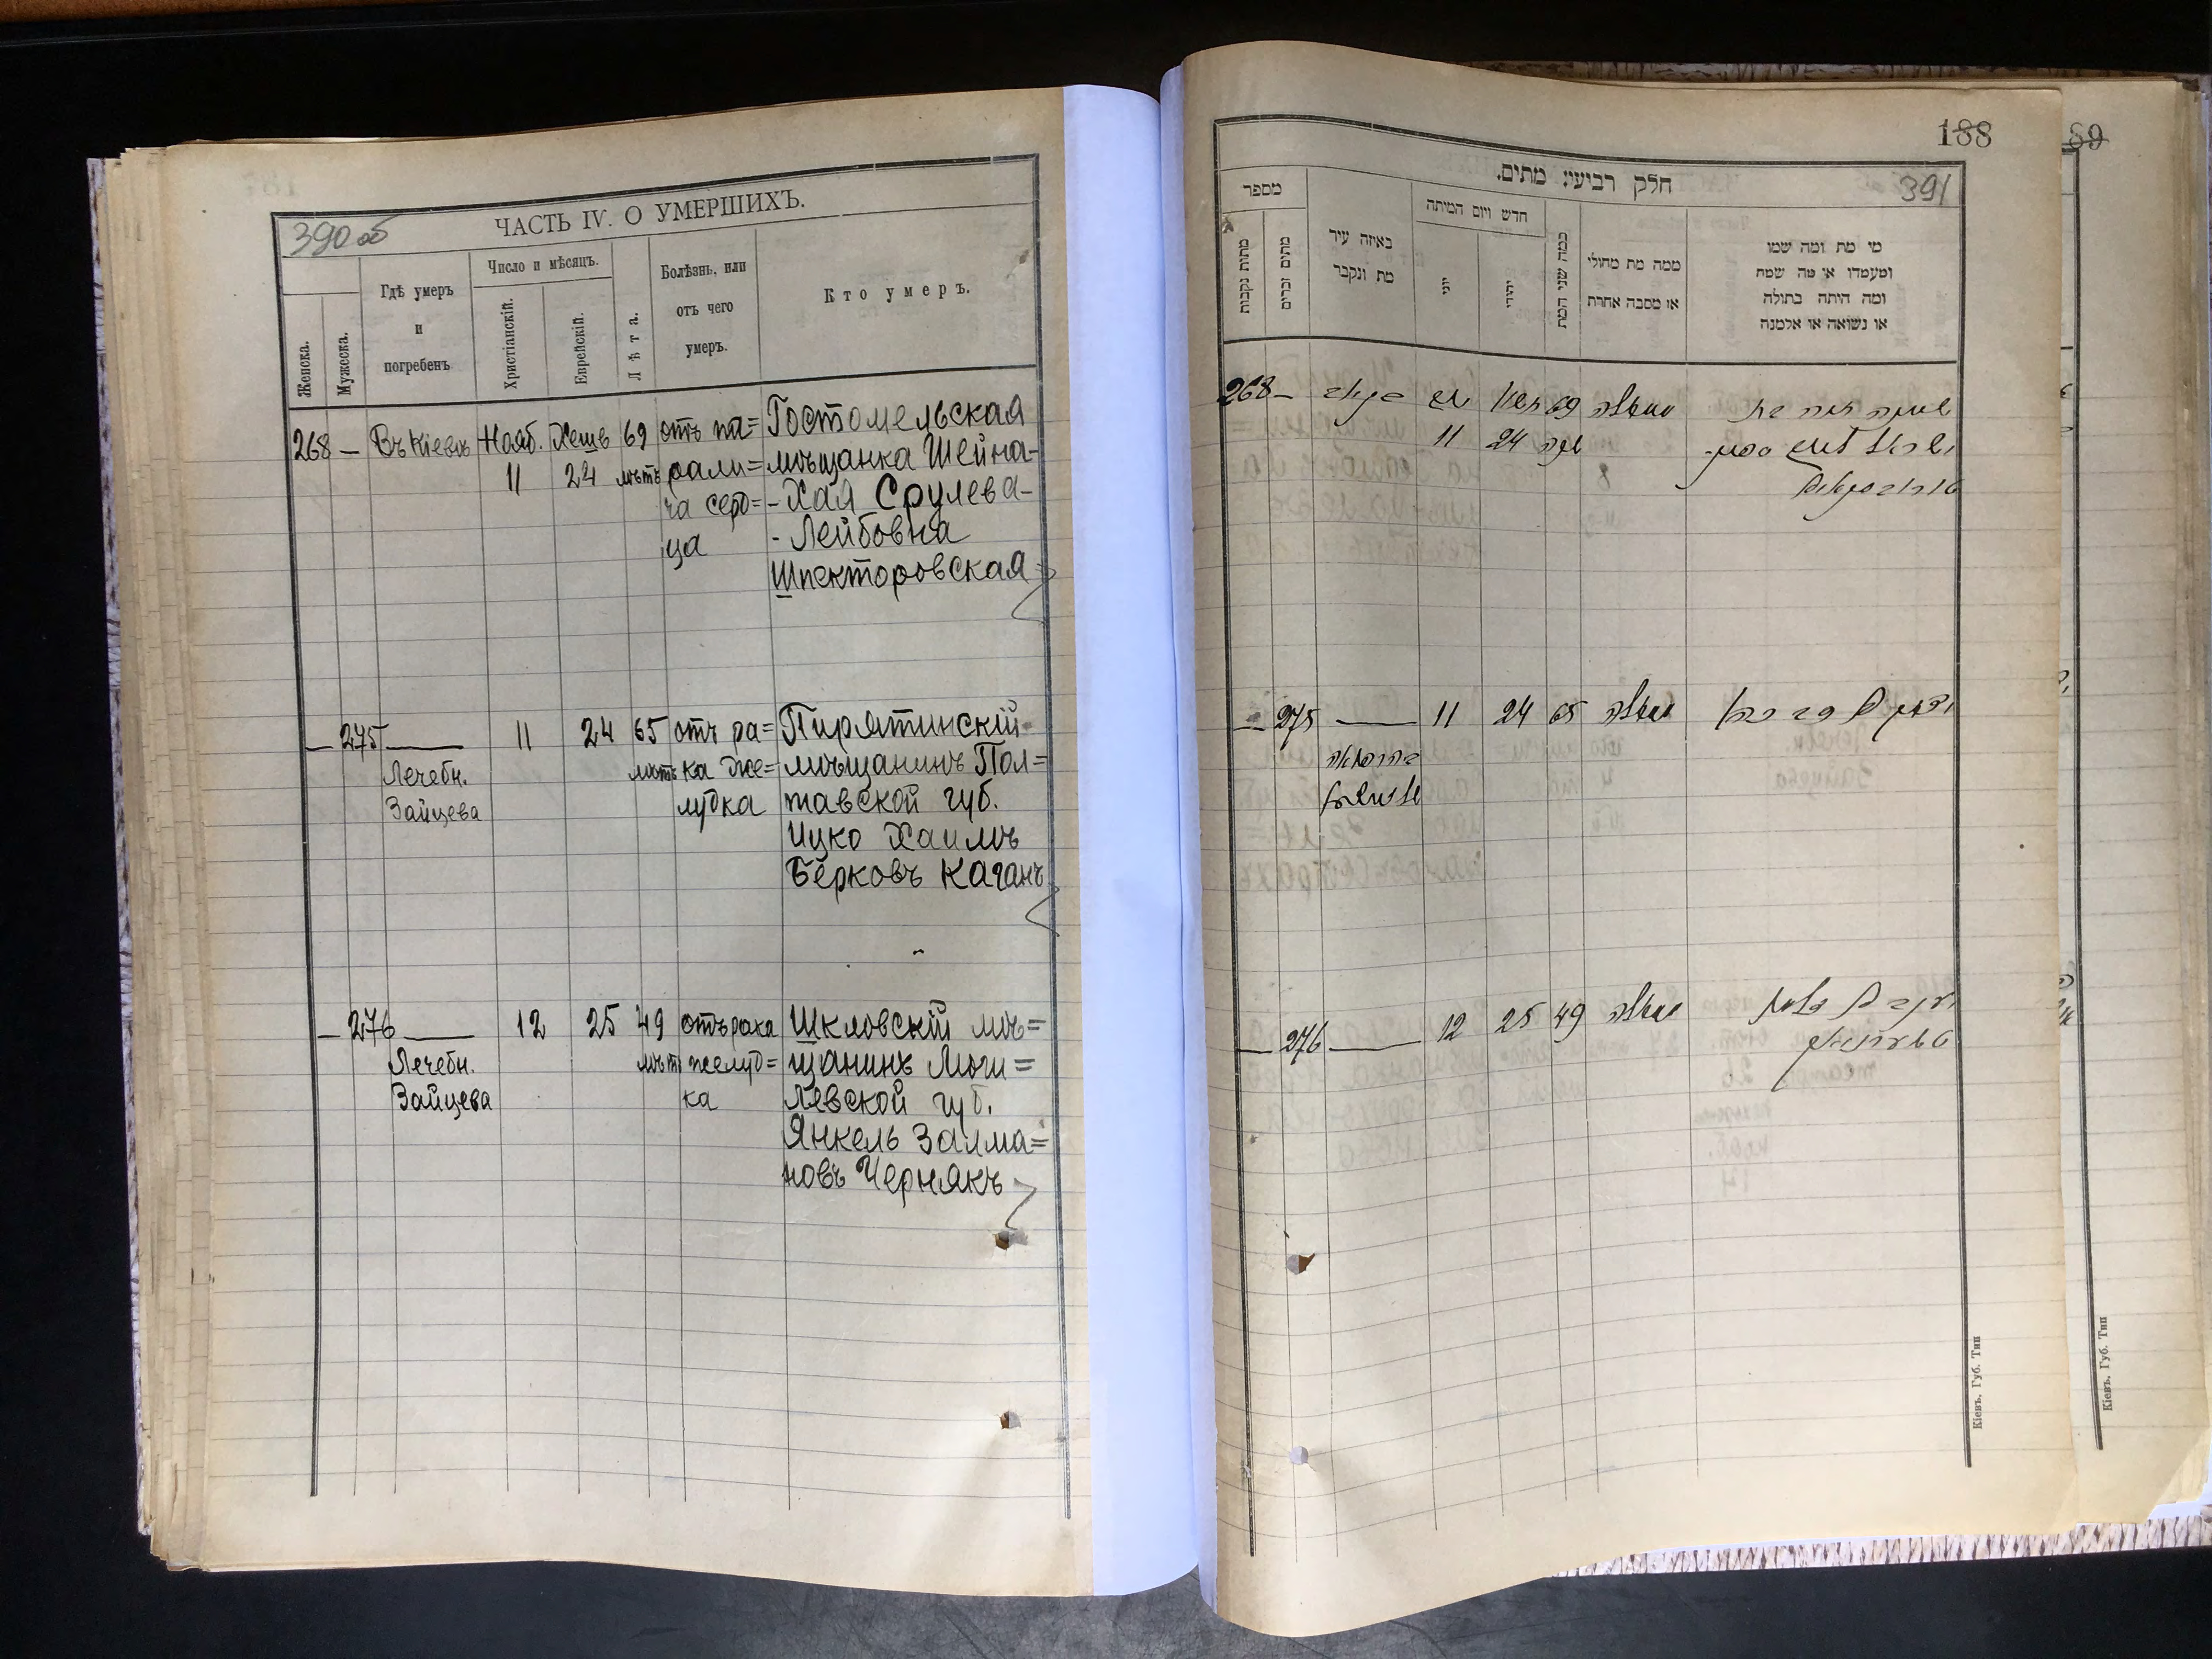 390 об
ЧАСТЬ IV. О УМЕРШИХЪ.
Женска.
Мужеска.
Гдѣ умеръ
и
погребенъ
Число и мѣсяцъ.
Христіанскій.
Еврейскій.
Лѣта.
Болѣзнь, или
отъ чего
умеръ.
Кто умеръ.
268 — Въ Кіевѣ Нояб. Хешв 69 отъ па= Гостомельская
11 24 лѣтъ рали= мѣщанка Шейна-
ча серд= -Хая Срулева-
ца - Лейбовна
Шпекторовская
— 275 — 11 24 65 отъ ра= Пирятинскій
Лечебн. лѣтъ ка же= мѣщанинъ Пол=
Зайцева лудка тавской губ.
Ицко Хаимъ
Берковъ Каганъ
— 276 — 12 25 49 отъ рака Шкловскій мѣ=
Лечебн. лѣтъ желуд= щанинъ Моги=
Зайцева ка левской губ.
Янкель Залма=
новъ Чернякъ
188
89
391
חלק רביעי מתים.
מספר
מתות נקבות
מתים זכרים
באיזה עיר
מת ונקבר
חדש ויום המיתה
יוני
יהודי
כמה שני המת
ממה מת מחולי
או מסבה אחרת
מי מת ומה שמו
ומעמדו או מה שמה
ומה היתה בתולה
או נשואה או אלמנה
268 — 69
11 24
— 275 — 11 24 65
— 276 — 12 25 49
Кіевъ, Губ. Тип
Кіевъ, Губ. Тип